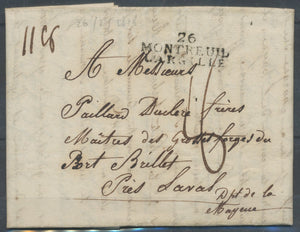 26
MONTREUIL
L'ARGILLÉ
A Messieurs
Paillard Ducléré frères
Maîtres des Grosses forges du
Port Brillet
Près Laval
Dpt de la
Mayenne